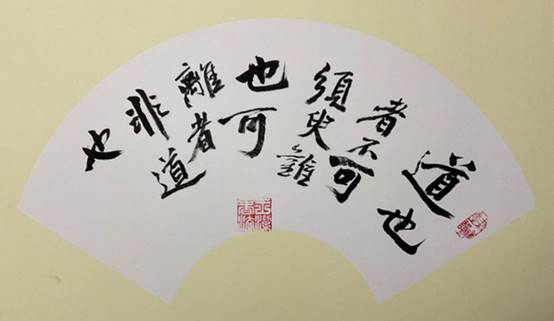 道也
者不可
須臾離
也可
離者
非道
也